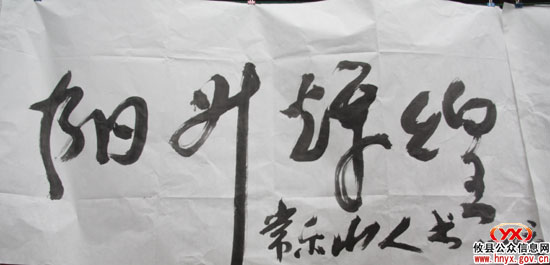 阳升辉煌
常乐山人书
攸县公众信息网
www.hnyx.gov.cn